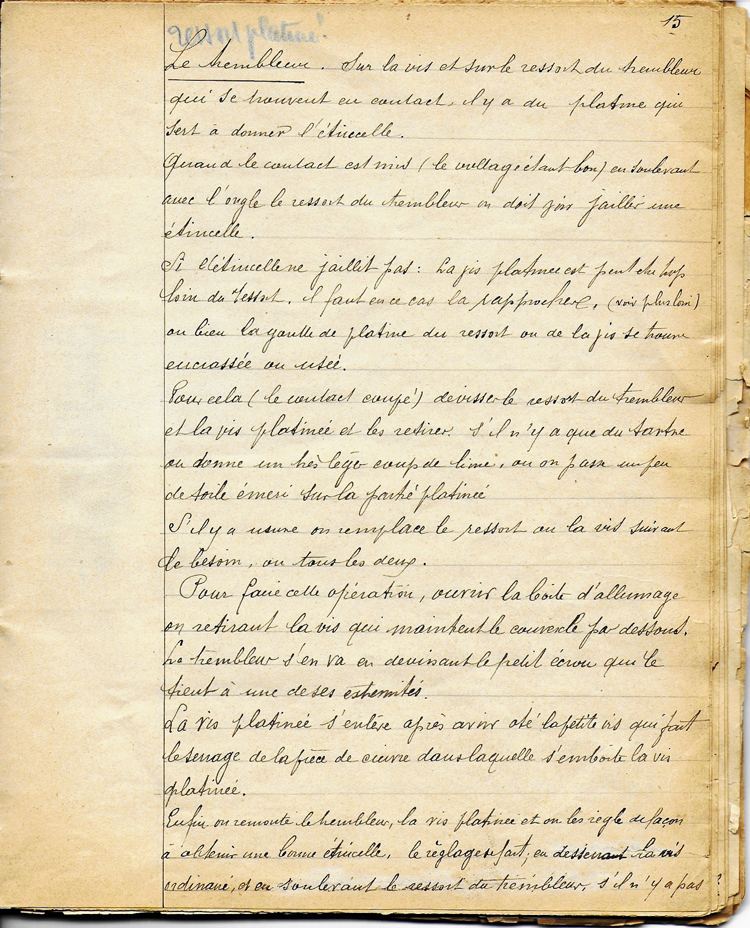 15
ressort platiné!
Le trembleur. Sur la vis et sur le ressort du trembleur
qui se trouvent en contact, il y a du platine qui
sert à donner l'étincelle.
Quand le contact est mis (le voltage étant bon) en soulevant
avec l'ongle le ressort du trembleur on doit voir jaillir une
étincelle.
Si l'étincelle ne jaillit pas : La vis platinée est peut être trop
loin du ressort. Il faut en ce cas la rapprocher, (voir plus loin)
ou bien la goutte de platine du ressort ou de la vis se trouve
encrassée ou usée.
Pour cela (le contact coupé) dévisser le ressort du trembleur
et la vis platinée et les retirer. S'il n'y a que du tartre
on donne un très léger coup de lime, ou on passe un peu
de toile émeri sur la partie platinée
S'il y a usure on remplace le ressort ou la vis suivant
le besoin, ou tous les deux.
Pour faire cette opération, ouvrir la boîte d'allumage
en retirant la vis qui maintent le couvercle par dessous.
Le trembleur s'en va en devissant le petit écrou qui le
tient à une de ses extremités.
La vis platinée s'enlève après avoir oté la petite vis qui fait
le serrage de la pièce de cuivre dans laquelle s'emboîte la vis
platinée.
Enfin on remonte le trembleur, la vis platinée et on les règle de façon
à obtenir une bonne etincelle, le règlage se fait, en desserrant la vis
ordinaire, et en soulevant le ressort du trembleur, s'il n'y a pas